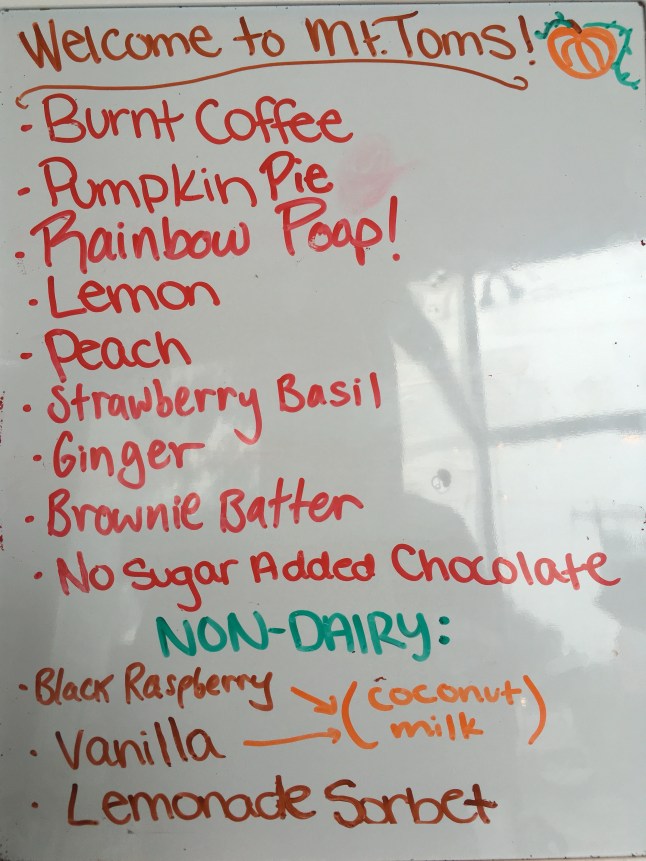 Welcome to Mt. Toms!
• Burnt Coffee
• Pumpkin Pie
• Rainbow Poap!
• Lemon
• Peach
• Strawberry Basil
• Ginger
• Brownie Batter
• No Sugar Added Chocolate
NON-DAIRY:
• Black Raspberry
(coconut
milk)
• Vanilla
• Lemonade Sorbet